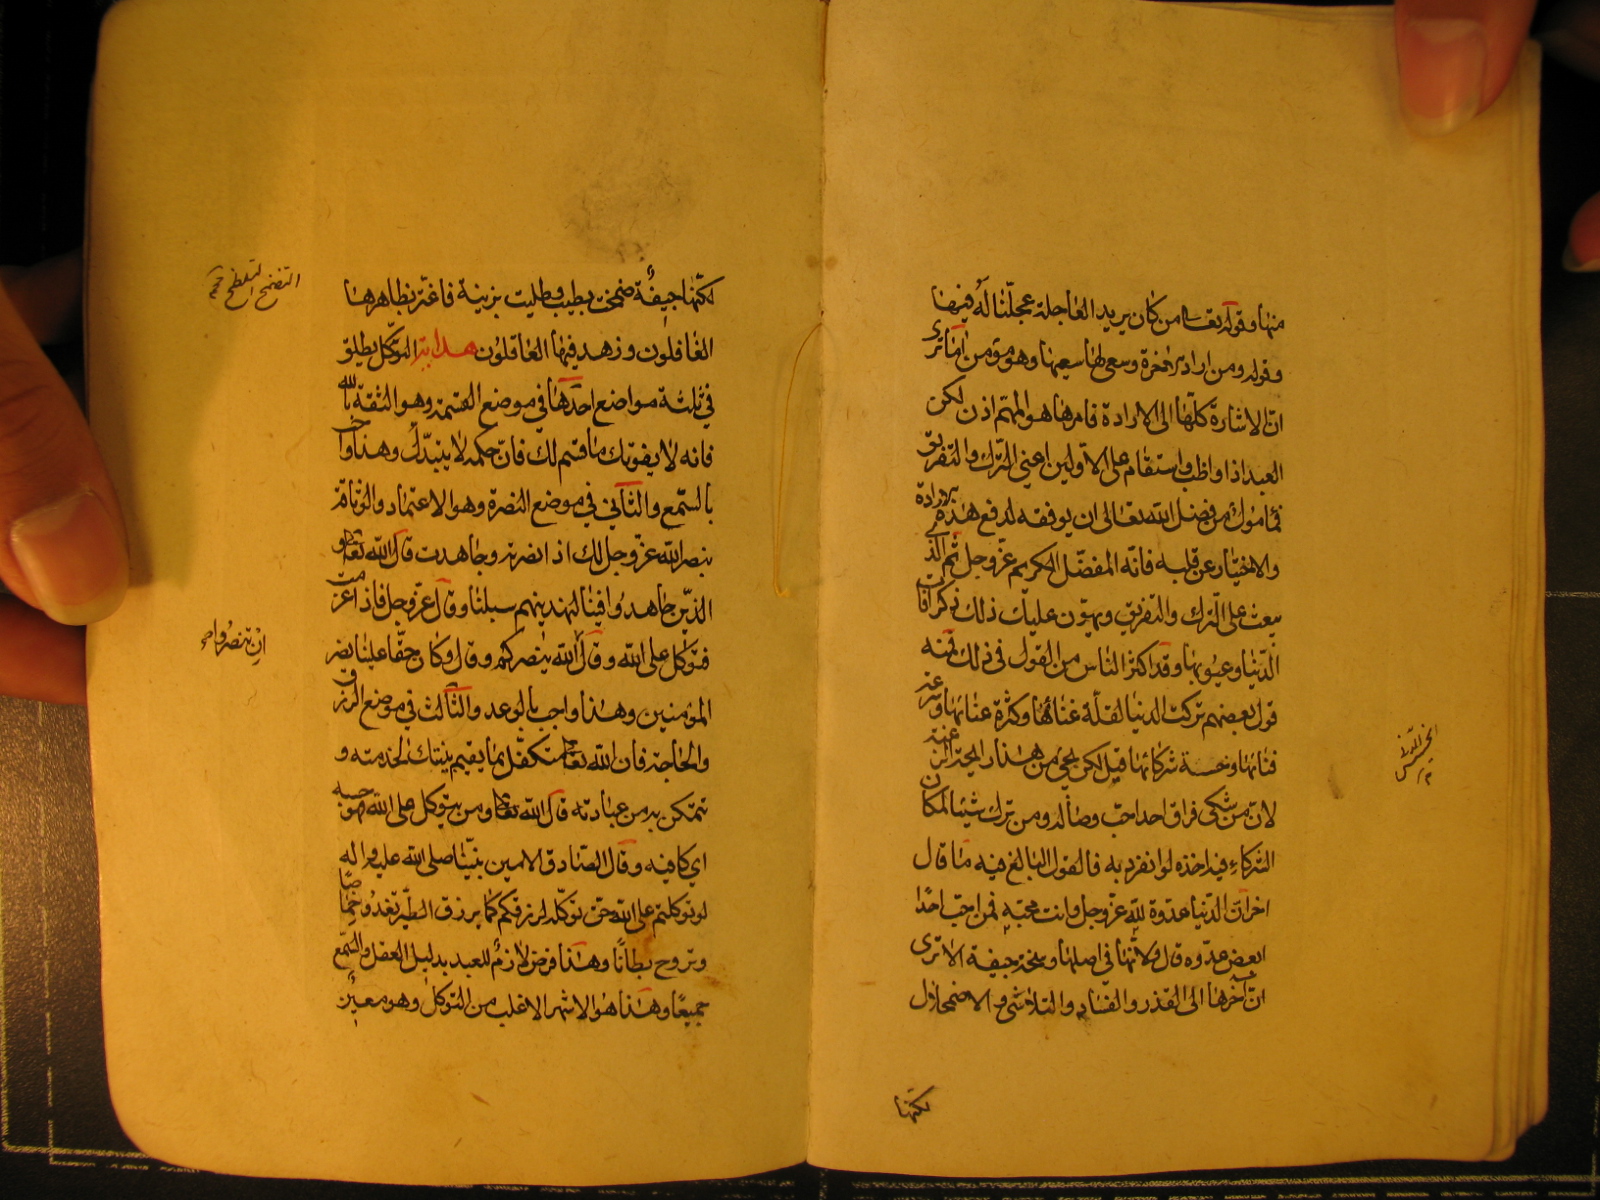 منها وقوله تعالى من كان يريد العاجلة عجلنا له فيها
وقوله ومن اراد الاخرة وسعى لها سعيها وهو مؤمن اما ترى
ان الاشارة كلها الى الارادة فامرها هو المهم اذن لكن
العبد اذا واظب واستقام على الاولين اعني الترك والتفريق
فمامول من فضل الله تعالى ان يوفقه لدفع هذه الارادة
والاختيار عن قلبه فانه المفضل الكريم عز وجل ثم الذي
يبعث على الترك والتفريق ويهون عليك ذلك ذكر افات
الدنيا وعيوبها وقد اكثر الناس من القول في ذلك فمنه
قول بعضهم تركت الدنيا لقلة غنائها وكثرة عنائها وسرعة
فنائها وخسة شركائها قيل لكن يجيء من هذا رايحة الرغبة
لان من شكى فراق احد احب وصاله ومن ترك شيئا لمكان
الشركاء فيه اخذه لو انفرد به فالقول البالغ فيه ما قال
اخر ان الدنيا عدوة لله عز وجل وانت محبه فمن احب احدا
ابغض عدوه قال ولانها في اصلها وسخة جيفة الا ترى
ان آخرها الى القذر والفساد والتلاشي والاضمحلال
لكنها
لكنها جيفة ضمخت بطيب وطليت بزينة فاغتر بظاهرها
الغافلون وزهد فيها العاقلون هداية التوكل يطلق
في ثلثة مواضع احدها في موضع القسمة وهو الثقة بالله
فانه لا يفوتك ما قسم لك فان حكمه لا يتبدل وهذا واجب
بالسمع والثاني في موضع النصرة وهو الاعتماد والوثاقة
بنصر الله عز وجل لك اذا نصرته وجاهدت قال الله تعالى و
الذين جاهدوا فينا لنهدينهم سبلنا وقال عز وجل فاذا عزمت
فتوكل على الله وقال الله ينصركم وقال وكان حقا علينا نصر
المؤمنين وهذا واجب بالوعد والثالث في موضع الرزق
والحاجة فان الله تعالى متكفل بما يقيم بنيتك لخدمته و
تتمكن به من عبادته قال الله تعالى ومن يتوكل على الله فهو حسبه
اي كافيه وقال الصادق الامين نبينا صلى الله عليه واله
لو توكلتم على الله حق توكله لرزقكم كما يرزق الطير تغدو خماصا
وتروح بطانا وهذا فرض لازم للعبد بدليل العقل والسمع
جميعا وهذا هو الاشهر الاغلب من التوكل وهو معين
التضمخ التلطخ
ان تنصروا صح